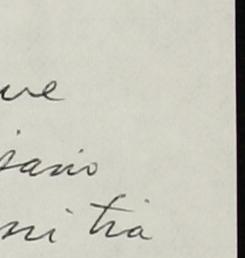 ve
siano
ni tra